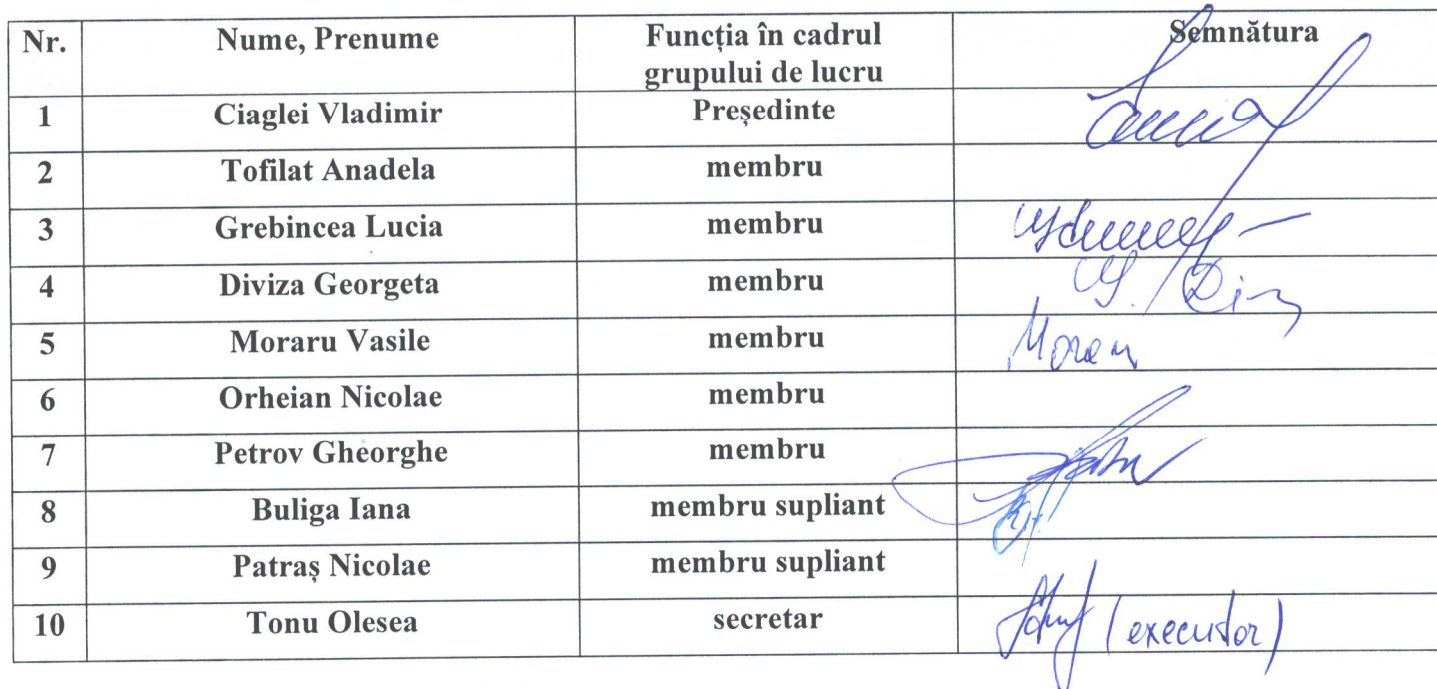 Nr. Nume, Prenume Funcția în cadrul grupului de lucru Semnătura
1 Ciaglei Vladimir Președinte
2 Tofilat Anadela membru
3 Grebincea Lucia membru
4 Diviza Georgeta membru
5 Moraru Vasile membru
6 Orheian Nicolae membru
7 Petrov Gheorghe membru
8 Buliga Iana membru supliant
9 Patraș Nicolae membru supliant
10 Tonu Olesea secretar (executor)